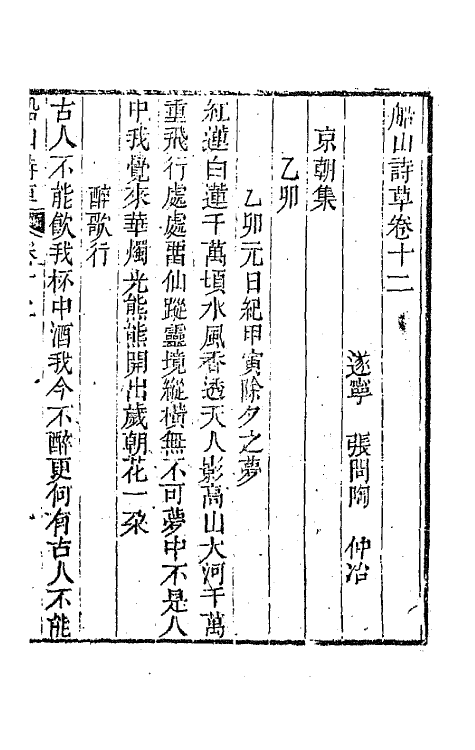 船山詩草卷十二
遂寧　張問陶　仲冶
京朝集
乙卯
乙卯元日紀甲寅除夕之夢
紅蓮白蓮千萬頃水風香透天人影高山大河千萬
重飛行處處畱仙蹤靈境縱橫無不可夢中不是人
中我覺來華燭光熊熊開出歲朝花一朶
醉歌行
古人不能飲我杯中酒我今不醉更何有古人不能
船山詩草